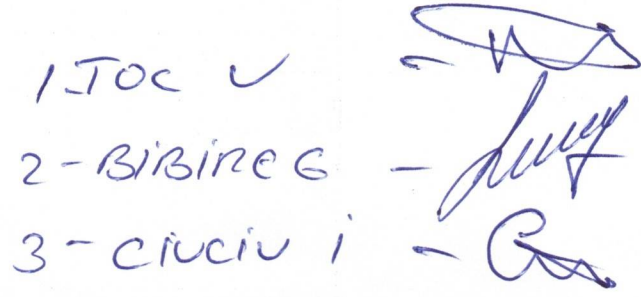 1. TOC V -
2 - BIBIRE G -
3 - CIUCIU I -